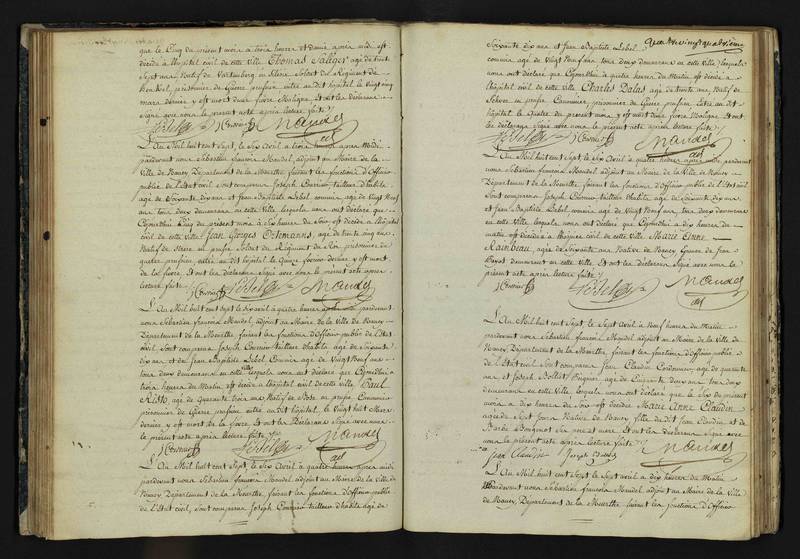 que le Cinq du présent mois à trois heures et demie après midi est
décédé à l'hôpital civil de cette ville Thomas Saliger agé de trente
Sept ans Natif de en Silésie Soldat du Régiment de
prisonnier de Guerre prussien entré au dit hôpital le vingt cinq
mars dernier y est mort d'une fièvre Maligne, Et ont les déclarans
Signé avec nous le présent acte après lecture faite
Mandel
adj
L'An Mil huit cent Sept, le Six Avril à trois heures après Midi
pardevant nous Sébastien françois Mandel, adjoint au Maire de la
Ville de Nancy Département de la Meurthe, faisant les fonctions d'Officier
public de l'Etat civil Sont comparus Joseph tailleur d'habits
agé de Soixante dix ans et Jean Baptiste Lebel commis agé de vingt Neuf
ans, tous deux demeurans en cette ville lesquels nous ont déclaré que
Cinq du présent mois à Six heures du Soir est décédé à l'hôpital
civil de cette ville Jean Georges Ortemanns, agé de trente cinq ans
Natif de en prusse Soldat du Régiment du Roi prisonnier de
guerre prussien entré au dit hôpital le Quinze février dernier y est mort
de la fièvre. Et ont les déclarans Signé avec nous le présent acte après
lecture faite
Mandel
adj
L'An Mil huit cent Sept le Six avril à quatre heures après midi pardevant
nous Sébastien françois Mandel, adjoint au Maire de la Ville de Nancy
Département de la Meurthe faisant les fonctions d'Officier public de l'Etat
civil Sont comparus Joseph tailleur d'habits agé de Soixante
dix ans et Jean Baptiste Lebel Commis agé de Vingt Neuf ans
tous deux demeurans en cette ville lesquels nous ont déclaré que
trois heures du Matin est décédé à l'hôpital civil de cette ville Paul
Risto, agé de Quarante trois ans Natif de en prusse Canonnier
prisonnier de Guerre prussien entré au dit hôpital le vingt huit Mars
dernier y est mort de la fièvre. Et ont les déclarans Signé avec nous
le présent acte après lecture faite
Mandel
adj
L'An Mil huit cent Sept, le Six Avril à quatre heures après midi
pardevant nous Sébastien françois Mandel adjoint au Maire de la Ville de
Nancy Département de la Meurthe, faisant les fonctions d'Officier public
de l'Etat civil, Sont comparus Joseph tailleur d'habits agé de
quatrevingt quatrième
Soixante dix ans et Jean Baptiste Lebel
commis agé de Vingt Neuf ans tous deux demeurans en cette ville, lesquels
nous ont déclaré que à quatre heures du Matin est décédé à
l'hôpital civil de cette ville Charles Dalas agé de trente ans, Natif de
en prusse Canonnier, prisonnier de Guerre prussien entré au dit
hôpital le Quatre du présent mois y est mort d'une fièvre Maligne, Et ont
les déclarans Signé avec nous le présent acte après lecture faite
Mandel
adj
L'An Mil huit cent Sept, le Six Avril à quatre heures après midi, pardevant
nous Sébastien françois Mandel adjoint au Maire de la Ville de Nancy
Département de la Meurthe, faisant les fonctions d'Officier public de l'Etat civil
Sont comparus Joseph tailleur d'habits agé de Soixante dix ans
et Jean Baptiste Lebel commis agé de vingt Neuf ans, tous deux demeurans
en cette ville, lesquels nous ont déclaré que à dix heures du
matin est décédée à l'hospice civil de cette ville Marie Anne
Rainbeau, agée de Soixante ans Native de Nancy Epouse de Jean
demeurant en cette Ville. Et ont les déclarans Signé avec nous le
présent acte après lecture faite
Mandel
adj
L'An Mil huit cent Sept, le Sept Avril à Neuf heures du Matin
pardevant nous Sébastien françois Mandel adjoint au Maire de la Ville
de Nancy Département de la Meurthe faisant les fonctions d'Officier public
de l'Etat civil Sont comparus Jean Claudin Cordonnier agé de quarante
ans, et Joseph agé de ans tous deux
demeurans en cette Ville, lesquels nous ont déclaré que le Six du présent
mois à dix heures du Soir est décédée Marie Anne Claudin
agée de Sept Jours, Native de Nancy fille du dit Jean Claudin et de
Barbe Ses père et mère. Et ont les déclarans Signé avec
nous le présent acte après lecture faite
Jean Claudin Joseph Mandel
adj
L'An Mil huit cent Sept le Sept avril à dix heures du Matin
pardevant nous Sébastien françois Mandel adjoint au Maire de la Ville
de Nancy, Département de la Meurthe faisant les fonctions d'Officier